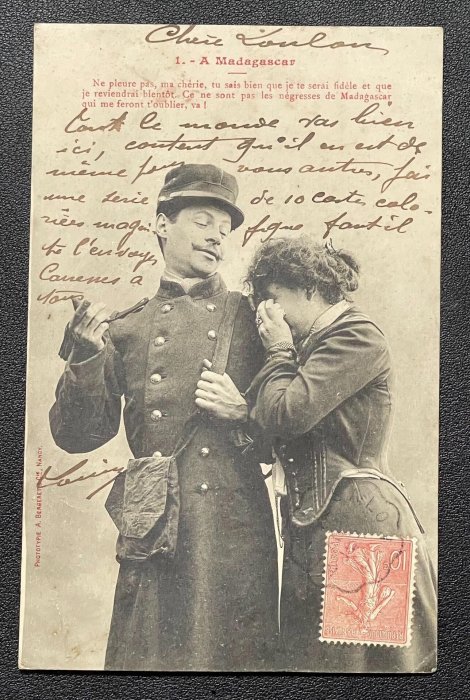 Chère Loulou
1. - A Madagascar
Ne pleure pas, ma chérie, tu sais bien que je te serai fidèle et que
je reviendrai bientôt. Ce ne sont pas les négresses de Madagascar
qui me feront t'oublier, va !
Tout le monde vas bien
ici, content qu'il en est de
même pour vous autres, j'ai
une serie de 10 cartes colo-
riées magni- fique faut il
te l'envoyer
Caresses a
tous
Louise
PHOTOTYPIE A. BERGERET & Cie, NANCY
10